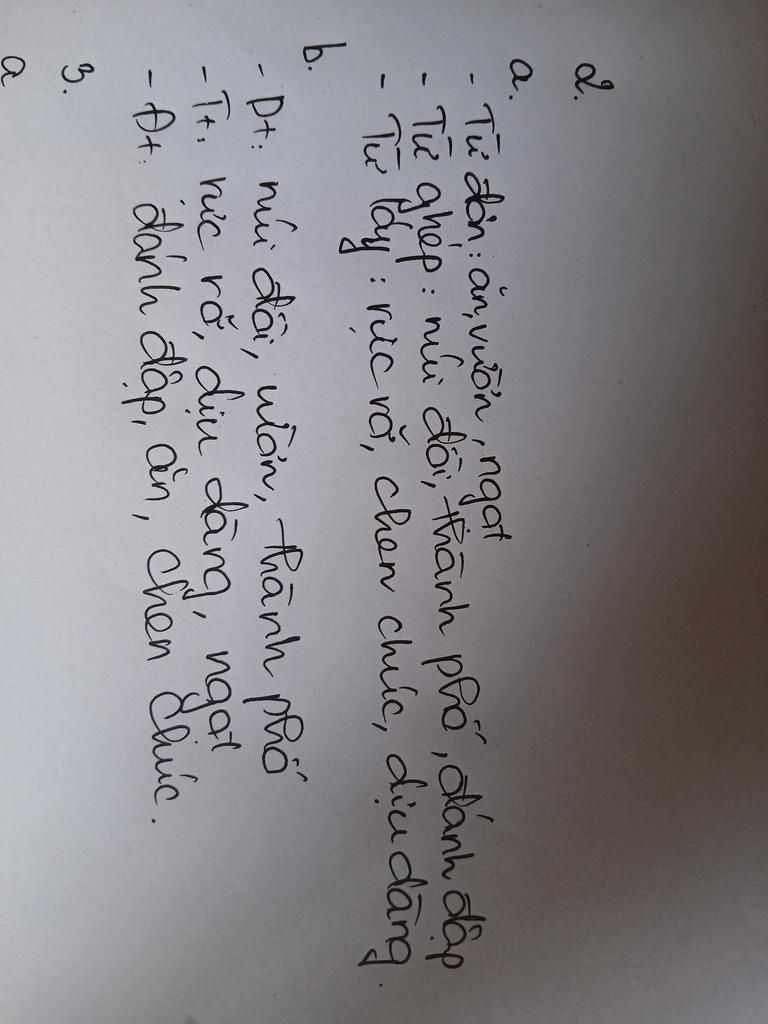 2.
a.
- Từ đơn: ăn, vườn, ngọt
- Từ ghép: núi đồi, thành phố, đánh đập
- Từ láy: rực rỡ, chen chúc, dịu dàng.
b.
- Dt: núi đồi, vườn, thành phố
- Tt: rực rỡ, dịu dàng, ngọt
- Đt: đánh đập, ăn, chen chúc.
3.
a